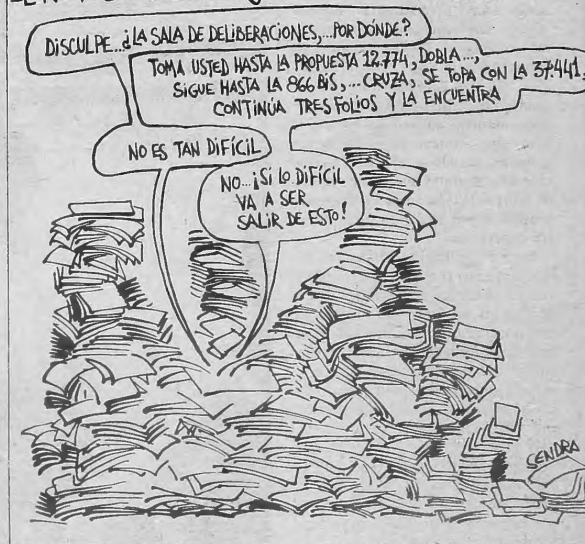 DISCULPE...¿LA SALA DE DELIBERACIONES,...POR DÓNDE?
TOMA USTED HASTA LA PROPUESTA 12.774, DOBLA...,
SIGUE HASTA LA 866 BIS,... CRUZA, SE TOPA CON LA 37.441,
CONTINÚA TRES FOLIOS Y LA ENCUENTRA
NO ES TAN DIFÍCIL
NO...¡SI LO DIFÍCIL
VA A SER
SALIR DE ESTO!
SENDRA